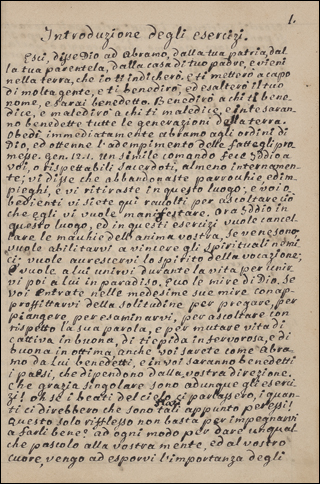 1.
Introduzione degli esercizi.
Esci, disse Dio ad Abramo, dalla tua patria, dal
la tua parentela, dalla casa di tuo padre, e vieni
nella terra, che io t'indicherò. e ti metterò a capo
di molta gente, e ti benedirò, ed esalterò il tuo
nome, e sarai benedetto. Benedirò a chi ti bene-
dice, e maledirò a chi ti maledice, e in te saran-
no benedette tutte le generazioni della terra.
obedì immediatamente abramo agli ordini di
Dio, ed ottenne l'adempimento delle fattegli pro
messe. gen. 12.1. Un simile comando fece Iddio a
voi, o rispettabili sacerdoti, almeno internamen-
te; vi disse che abbandonaste parrochie ed im-
pieghi, e vi ritiraste in questo luogo; e voi o
bedienti vi siete qui raccolti per ascoltare ciò
che egli vi vuole manifestare. Ora Iddio in
questo luogo, ed in questi esercizi vuole cancel-
lare le macchie dell'anima vostra, se ve ne sono,
vuole abilitarvi a vincere gli spirituali nemi
ci, vuole accrescervi lo spirito della vocazione;
e vuole a lui unirvi durante la vita per unir
vi poi a lui in paradiso. Ecco le mire di Dio. se
voi entrate nelle medesime sue mire, con ap-
proffittarvi della solitudine per pregare, per
piangere, per esaminarvi, per ascoltare con
rispetto la sua parola, e per mutare vita di
cattiva in buona, di tiepida in fervorosa, e di
buona in ottima, anche voi sarete come Abra-
mo da lui benedetti, e in voi saranno benedetti
i paesi, che dipendono dalla vostra direzione.
Che grazia singolare sono adunque gli eserci-
zi! oh se i beati del cielo ci parlassero, i quan-
ti ci direbbero che sono tali appunto per essi!
Questo solo riflesso non basta per impegnarvi
a farli bene? ad ogni modo per dare un qual
che pascolo alla vostra mente, ed al vostro
cuore, vengo ad esporvi l'importanza degli